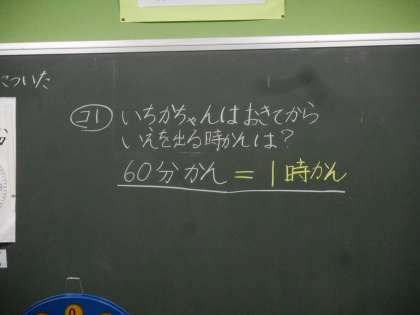 についた
コ1 いちかちゃんはおきてから
いえを出る時かんは？
60分かん＝1時かん
分